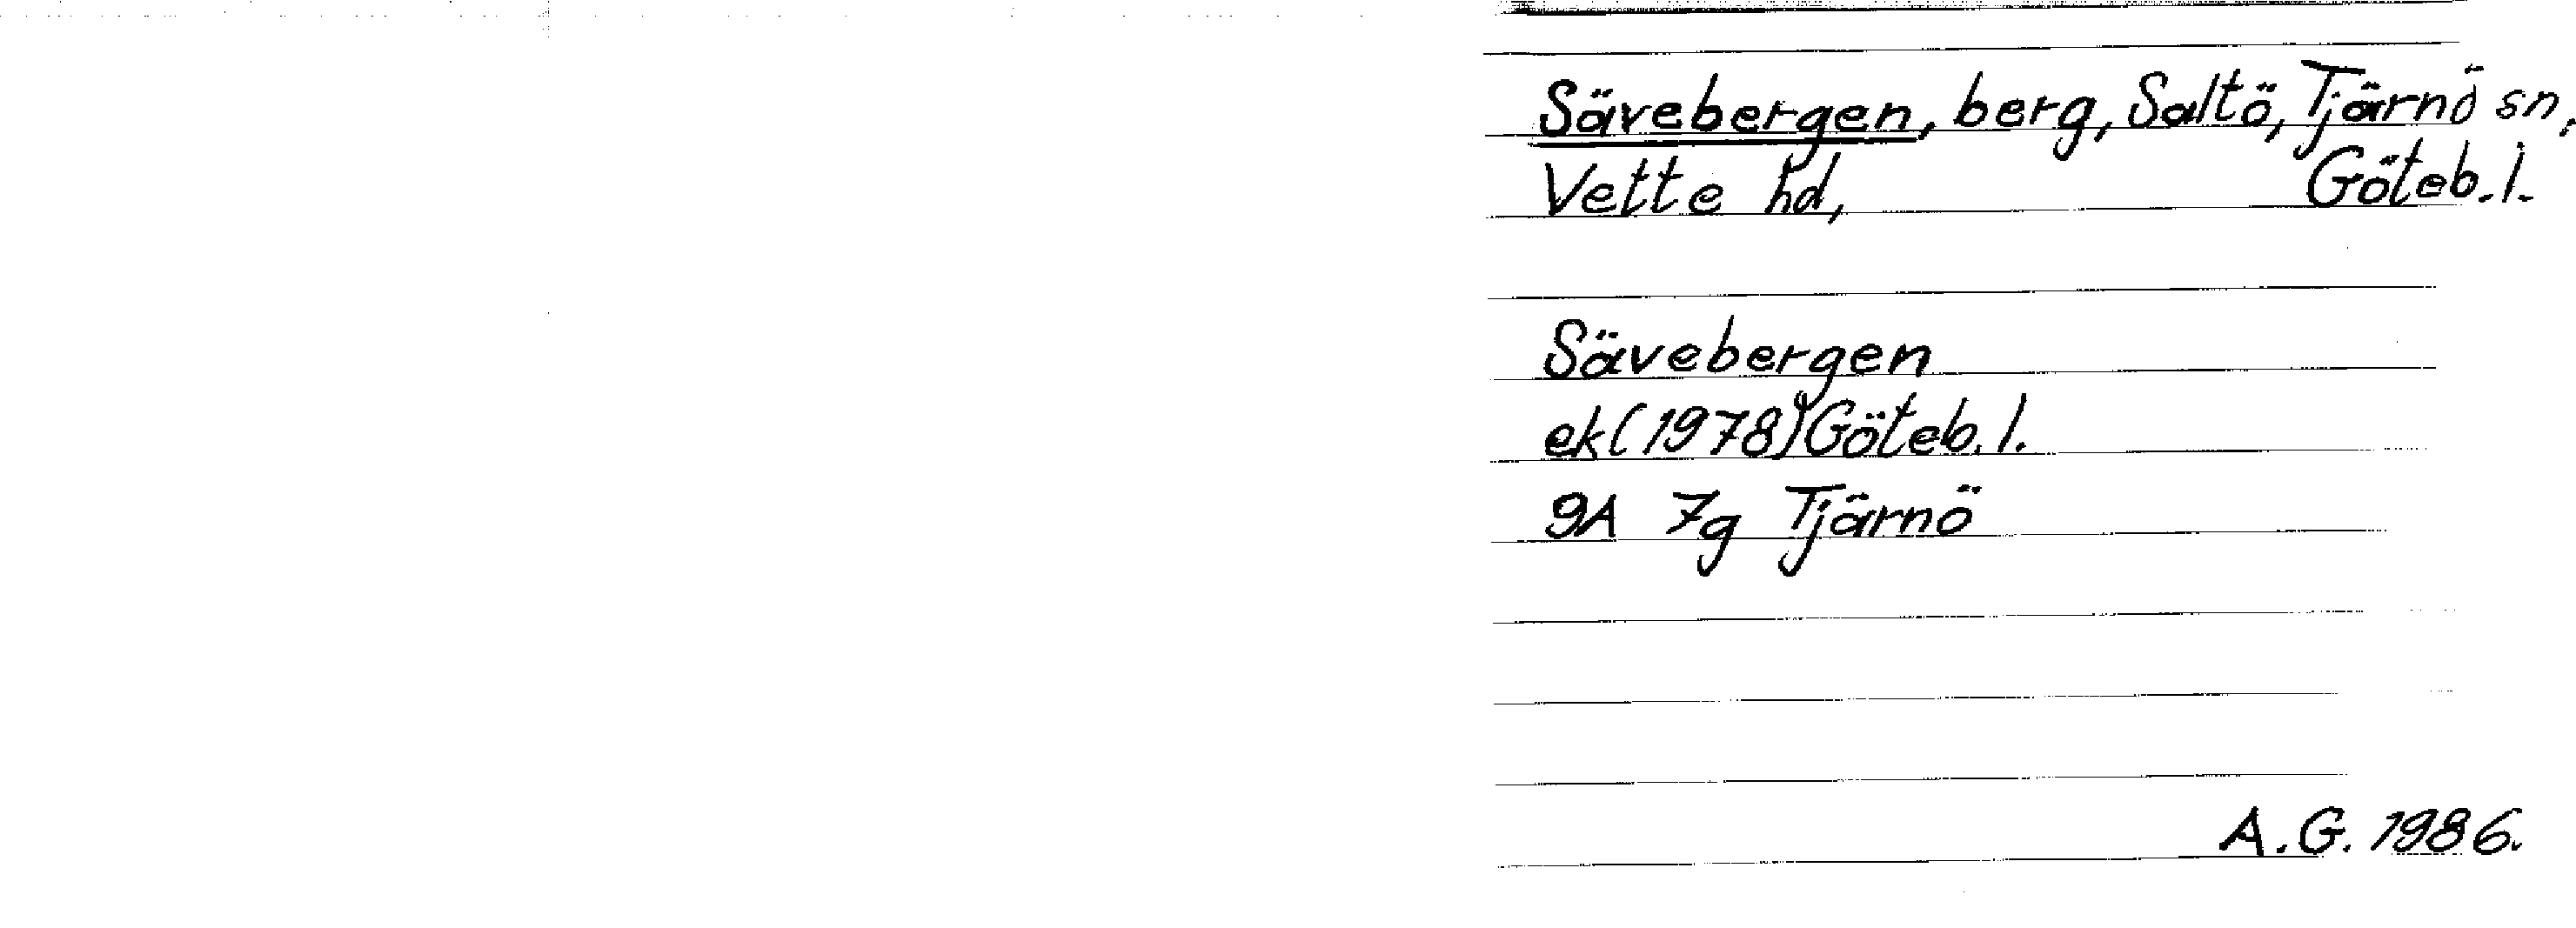 Sävebergen, berg, Saltö, Tjärnö sn,
Vette hd, Göteb. l.
Sävebergen
ek (1978) Göteb. l.
9A 7g Tjärnö
A.G. 1986.